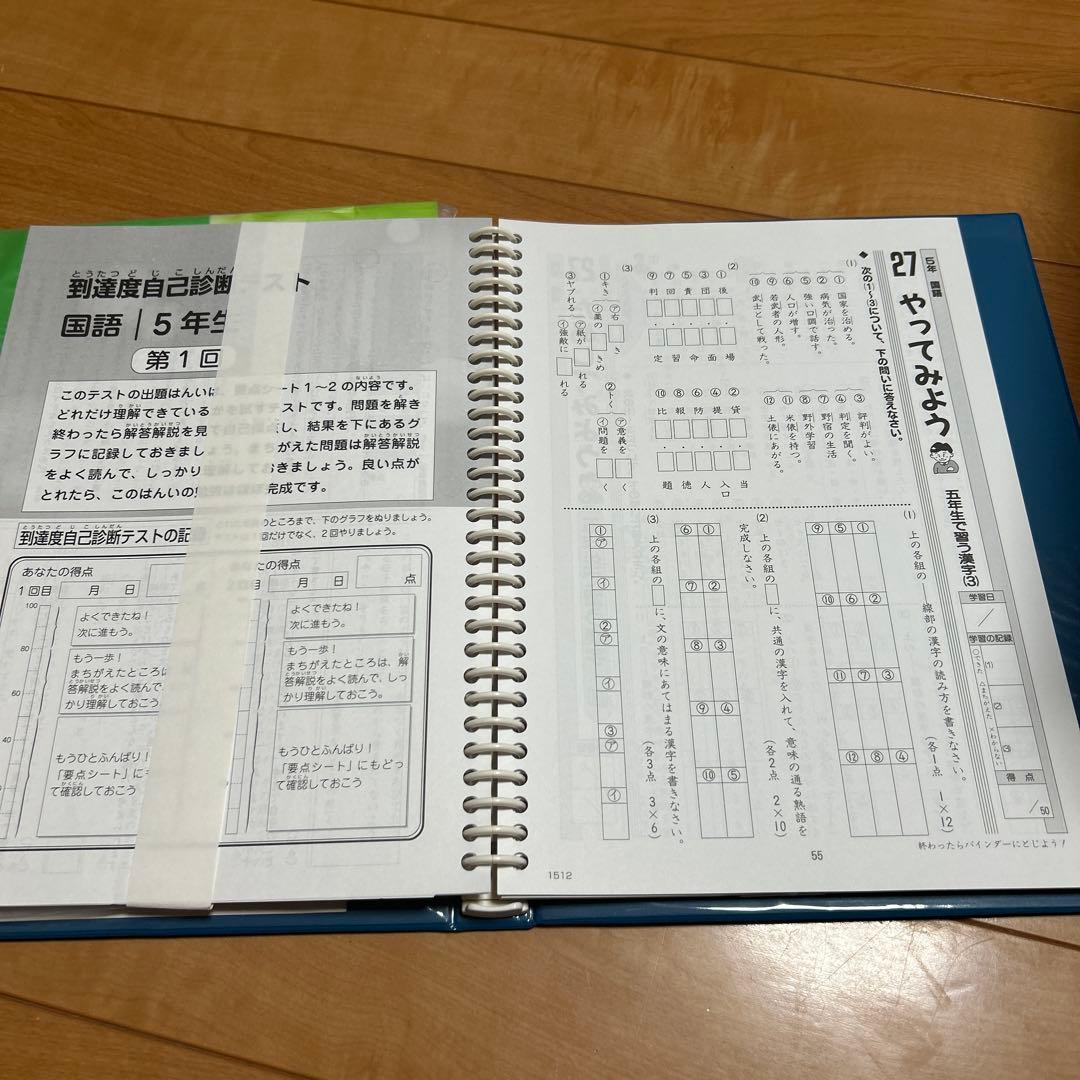 到達度自己診断テスト
国語｜5年生
第1回
このテストの出題はんいは
ート1～2の内容です。
どれだけ理解できている
テストです。問題を解き
終わったら解答解説を見
し、結果を下にあるグ
ラフに記録しておきまし
がえた問題は解答解説
をよく読んで、しっかり
おきましょう。良い点が
とれたら、このはんいの
完成です。
到達度自己診断テストの記
のところまで、下のグラフをぬりましょう。
回だけでなく、2回やりましょう。
あなたの得点
1回目
月 日
100
80
60
40
よくできたね！
次に進もう。
もう一歩！
まちがえたところは、
答解説をよく読んで、
かり理解しておこう。
もうひとふんばり！
「要点シート」にも
て確認しておこう
なたの得点
月 日
点
よくできたね！
次に進もう。
もう一歩！
まちがえたところは、解
答解説をよく読んで、しっ
かり理解しておこう。
もうひとふんばり！
「要点シート」にもどっ
て確認しておこう
5年 国語
27 やってみよう
五年生で習う漢字(3)
学習日
／
学習の記録
○できた △まちがえた ×わからない
(1)
(2)
(3)
得点
／50
◆次の(1)～(3)について、下の問いに答えなさい。
(1)
①国家を治める。
②病気が治った。
③評判がよい。
④判定を聞く。
⑤強い口調で話す。
⑥人口が増す。
⑦野宿の生活
⑧野外学習
⑨若武者の人形。
⑩武士として戦った。
⑪米俵を持つ。
⑫土俵にあがる。
(2)
①後□・□場
②貸□・□当
③団□・□面
④提□・□入口
⑤貴□・□命
⑥防□・□人
⑦回□・□習
⑧報□・□徳
⑨判□・□定
⑩比□・□題
(3)
①キき
㋐右□き
㋑薬の□きめ
②トく
㋐意義を□く
㋑問題を□く
③ヤブれる
㋐紙が□れる
㋑強敵に□れる
(1) 上の各組の
線部の漢字の読み方を書きなさい。
(各1点 1×12)
①
②
③
④
⑤
⑥
⑦
⑧
⑨
⑩
⑪
⑫
(2) 上の各組の□に、共通の漢字を入れて、意味の通る熟語を
完成しなさい。
(各2点 2×10)
①
②
③
④
⑤
⑥
⑦
⑧
⑨
⑩
(3) 上の各組の□に、文の意味にあてはまる漢字を書きなさい。
(各3点 3×6)
①
㋐
㋑
②
㋐
㋑
③
㋐
㋑
終わったらバインダーにとじよう！
55
1512